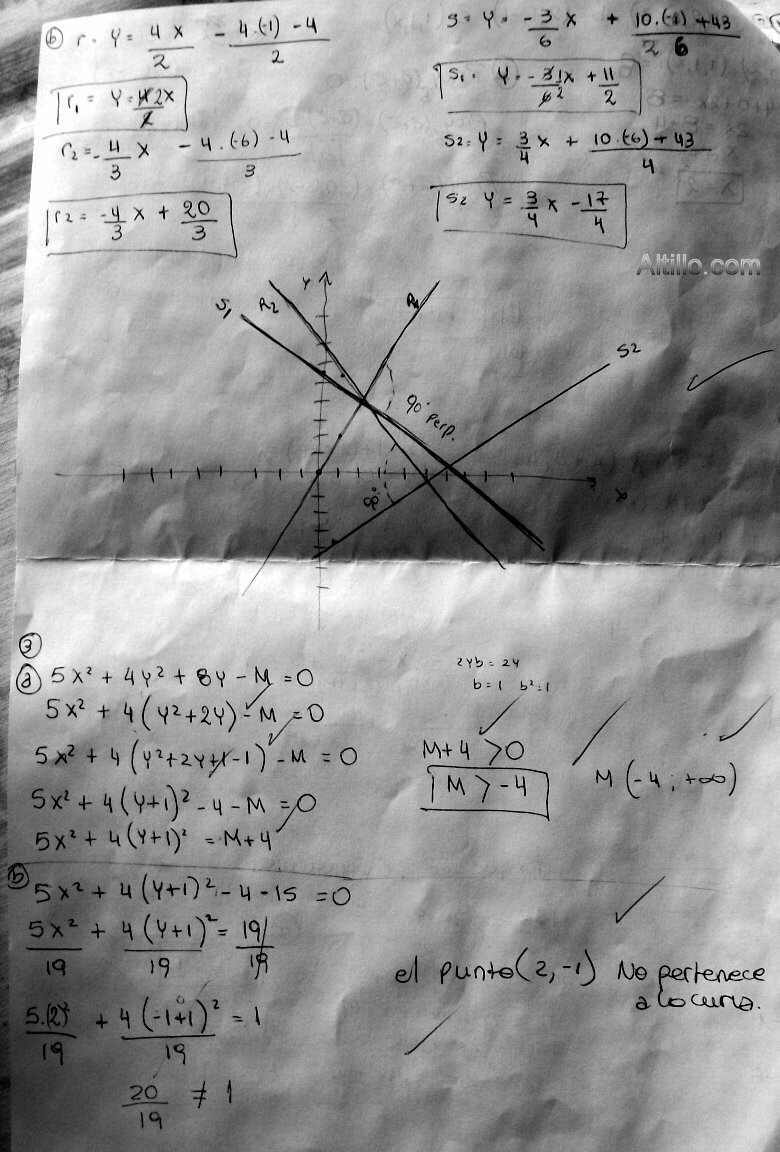 b) r. Y = 4x/2 - 4.(-1) - 4/2
r₁ = Y = 4 2x/2
r₂ = - 4/3 x - 4.(-6) - 4/3
r₂ = -4/3 x + 20/3
S = Y = - 3/6 x + 10.(-1) + 43/6
S₁ . Y = - 3 1x/6 2 + 11/2
S₂ = Y = 3/4 x + 10.(-6) + 43/4
S₂ Y = 3/4 x - 17/4
Altillo.com
Y
S₁
R₂
R1
S2
90° perp.
90°
x
3
a) 5x² + 4y² + 8y - M = 0
5x² + 4(y² + 2y) - M = 0
5x² + 4(y² + 2y + 1 - 1) - M = 0
5x² + 4(y+1)² - 4 - M = 0
5x² + 4(y+1)² = M + 4
2yb = 2y
b = 1 b² = 1
M + 4 > 0
M > -4
M (-4 ; +∞)
b) 5x² + 4(y+1)² - 4 - 15 = 0
5x²/19 + 4(y+1)²/19 = 19/19
5.(2)²/19 + 4(-1+1)²/19 = 1
0
20/19 ≠ 1
el punto (2, -1) No pertenece
a la curva.